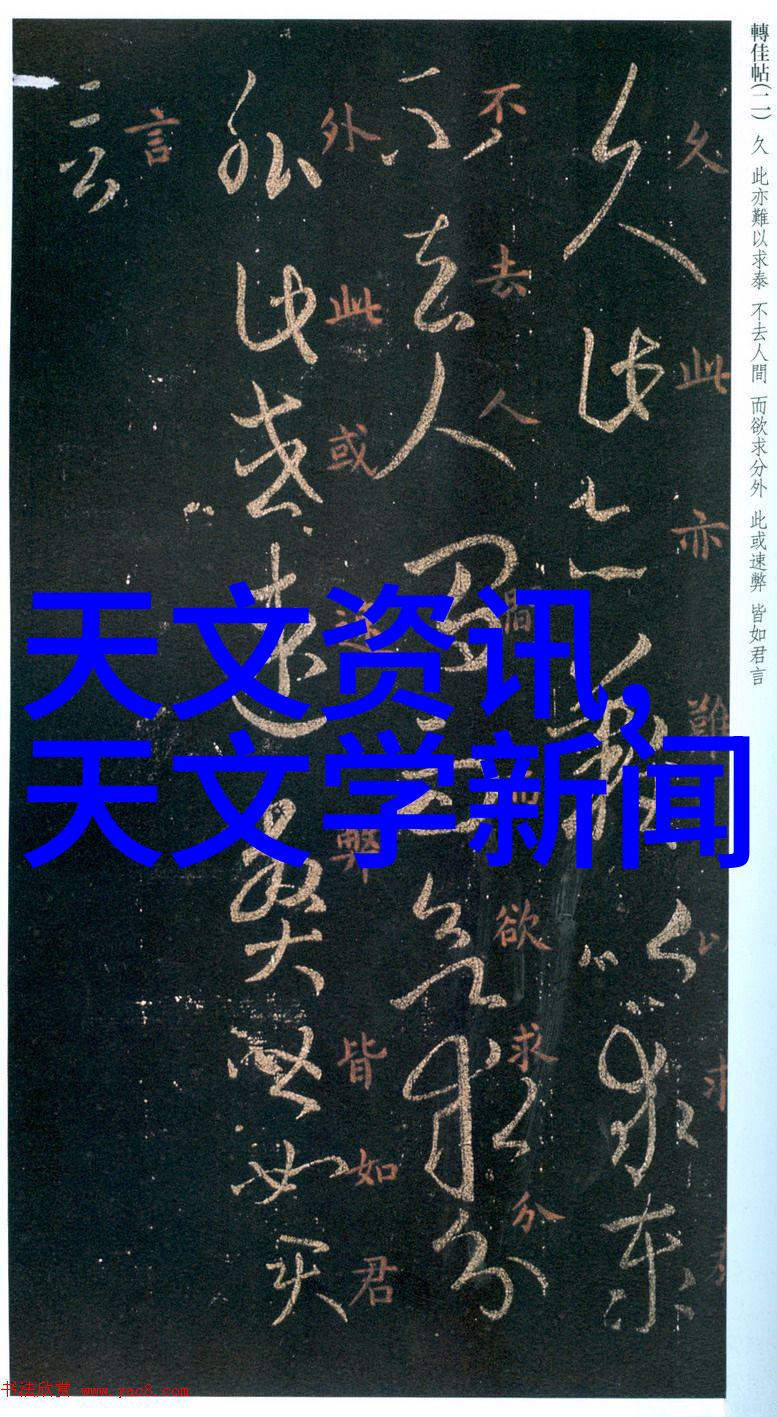 轉佳帖(二) 久 此亦難以求泰 不去人間 而欲求分外 此或速弊 皆如君言
久此亦難以求泰
不去人間而欲求分
外此或速弊皆如君
言
天文资讯,
天文学新闻
书法欣赏 www.yac8.com